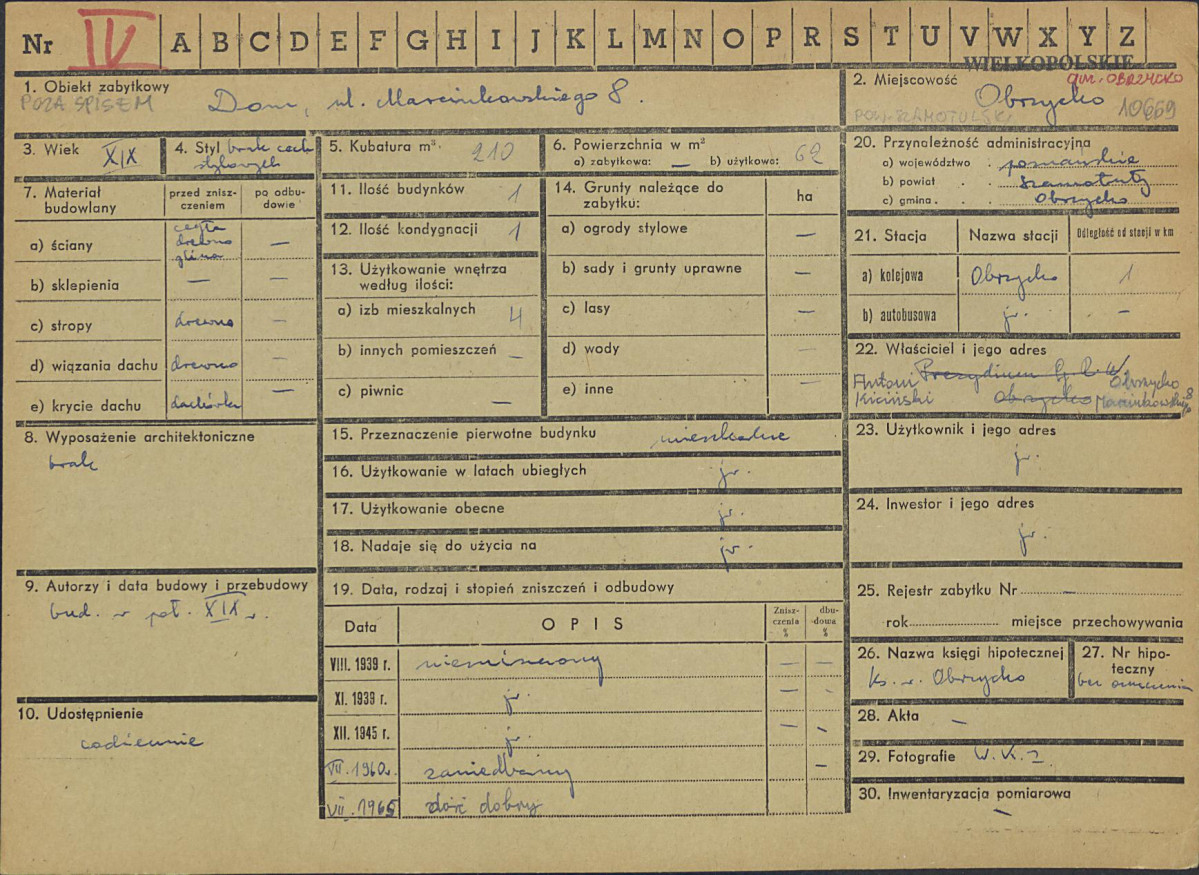 Nr IV A B C D E F G H I J K L M N O P R S T U V W X Y Z
WIELKOPOLSKIE
1. Obiekt zabytkowy
POZA SPISEM
Dom, ul. Marcinkowskiego 8.
2. Miejscowość
gm. OBRZYCKO
Obrzycko
POW. SZAMOTULSKI
10669
3. Wiek XIX
4. Styl brak cech
stylowych
5. Kubatura m³ 210
6. Powierzchnia w m²
a) zabytkowa: — b) użytkowa: 62
7. Materiał
budowlany
przed znisz-
czeniem
po odbu-
dowie
a) ściany
cegła
drewno
glina
—
b) sklepienia —
c) stropy drewno —
d) wiązania dachu drewno —
e) krycie dachu dachówka —
8. Wyposażenie architektoniczne
brak
9. Autorzy i data budowy i przebudowy
bud. w poł. XIX w.
10. Udostępnienie
codziennie
11. Ilość budynków 1
12. Ilość kondygnacji 1
13. Użytkowanie wnętrza
według ilości:
a) izb mieszkalnych 4
b) innych pomieszczeń —
c) piwnic —
14. Grunty należące do
zabytku:
ha
a) ogrody stylowe —
b) sady i grunty uprawne —
c) lasy —
d) wody —
e) inne —
15. Przeznaczenie pierwotne budynku mieszkalne
16. Użytkowanie w latach ubiegłych jw.
17. Użytkowanie obecne jw.
18. Nadaje się do użycia na jw.
19. Data, rodzaj i stopień zniszczeń i odbudowy
Data OPIS
Znisz-
czenia
%
dbu-
-dowa
%
VIII. 1939 r. niezniszczony — —
XI. 1939 r. jw. — -
XII. 1945 r. jw. — -
VII. 1960 r. zaniedbany —
VII. 1965 dość dobry
20. Przynależność administracyjna
a) województwo poznańskie
b) powiat . . Szamotuły
c) gmina . . Obrzycko
21. Stacja Nazwa stacji Odległość od stacji w km
a) kolejowa Obrzycko 1
b) autobusowa jw. —
22. Właściciel i jego adres
Prezydium G.R.N.
Antoni Obrzycko
Kiciński Obrzycko Marcinkowskiego 8
23. Użytkownik i jego adres
jw.
24. Inwestor i jego adres
jw.
25. Rejestr zabytku Nr —
rok miejsce przechowywania
26. Nazwa księgi hipotecznej
ks. w. Obrzycko
27. Nr hipo-
teczny
bez oznaczenia
28. Akta —
29. Fotografie W.K.Z.
30. Inwentaryzacja pomiarowa
—